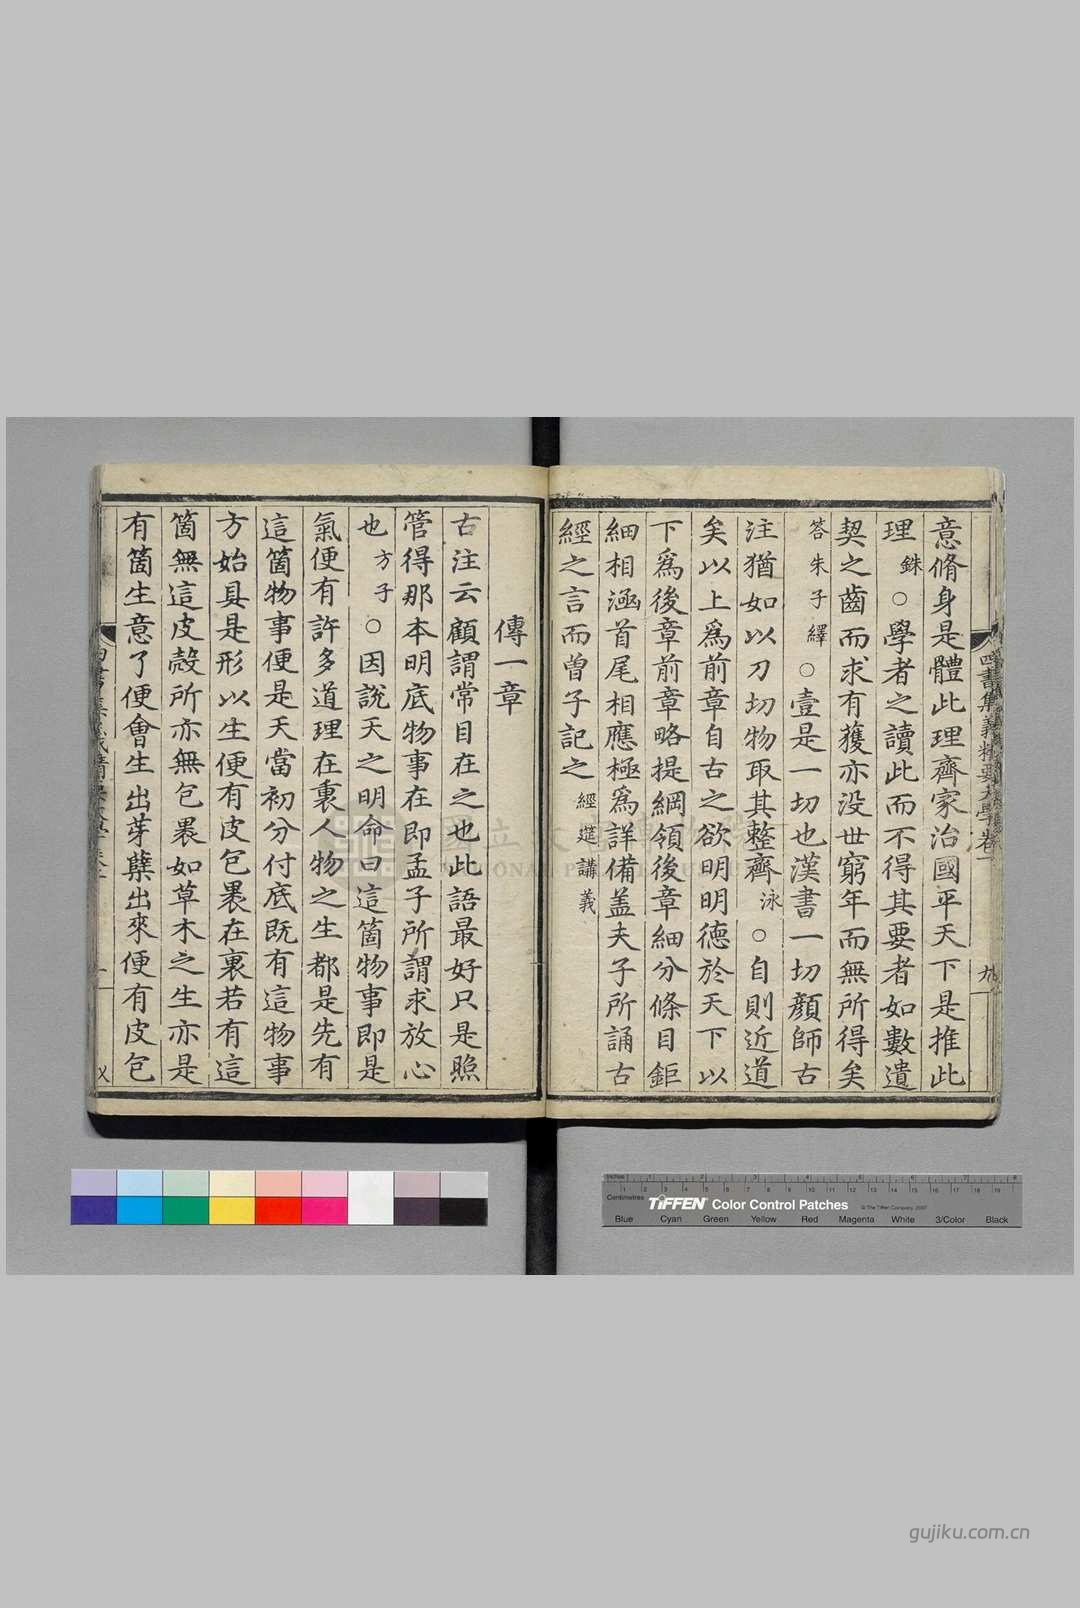 意脩身是體此理齊家治國平天下是推此
理銖○學者之讀此而不得其要者如數遺
契之齒而求有獲亦没世窮年而無所得矣
答朱子繹○壹是一切也漢書一切顔師古
注猶如以刀切物取其整齊泳○自則近道
矣以上爲前章自古之欲明明德於天下以
下爲後章前章略提綱領後章細分條目鉅
細相涵首尾相應極爲詳備盖夫子所誦古
經之言而曽子記之經筵講義
四書集義精要大學卷
九
傳一章
古注云顧謂常目在之也此語最好只是照
管得那本明底物事在即孟子所謂求放心
也方子○因說天之明命曰這箇物事即是
氣便有許多道理在裏人物之生都是先有
這箇物事便是天當初分付底既有這物事
方始具是形以生便有皮包褁在裏若有這
箇無這皮殻所亦無包褁如草木之生亦是
有箇生意了便會生出芽蘖出來便有皮包
國立故宮博物院
NATIONAL PALACE MUSEUM
Inches
Centimetres
TIFFEN Color Control Patches
© The Tiffen Company, 2007
Blue Cyan Green Yellow Red Magenta White 3/Color Black
gujiku.com.cn